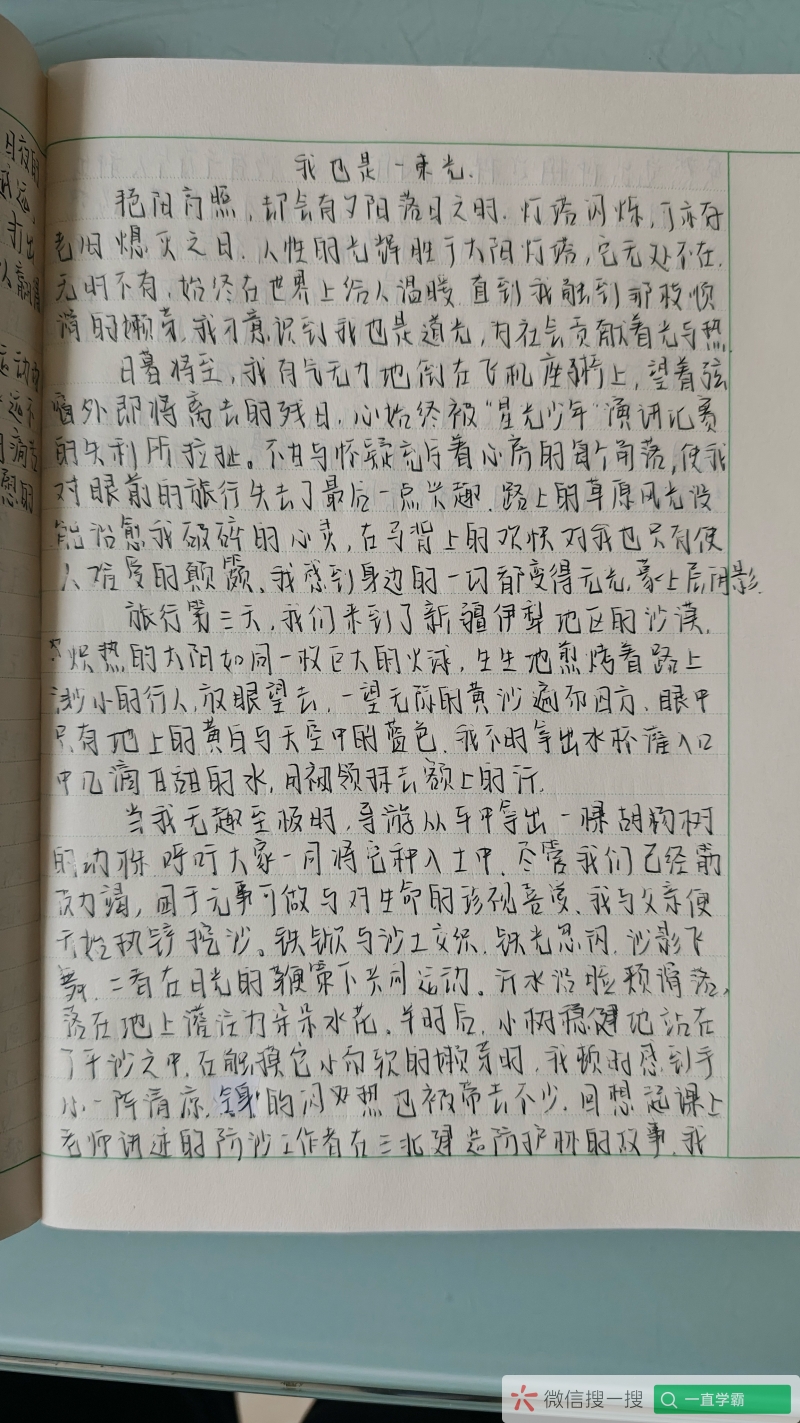 我也是一束光.
艳阳高照,却会有夕阳落日之时.灯塔闪烁,亦有
老旧熄灭之日.人性的光辉胜于太阳灯塔,它无处不在.
无时不有,始终在世界上给人温暖.直到我触到那枚
滴的嫩芽.我才意识到我也是道光,为社会贡献着光与热.
日暮将至,我有气无力地倒在飞机座椅上,望着弦
窗外即将离去的残日.心始终被“星光少年”演讲比赛
的失利所拉扯。不甘与怀疑充斥着心房的每个角落,使我
对眼前的旅行失去了最后一点兴趣.路上的草原风光没
能治愈我破碎的心灵,在马背上的欢快对我也只有使
人难受的颠簸.我感到身边的一切都变得无光,蒙上层阴影.
旅行第三天,我们来到了新疆伊犁地区的沙漠.
炽热的太阳如同一枚巨大的火球,生生地煎烤着路上
渺小的行人.放眼望去,一望无际的黄沙遍布四方.眼中
只有地上的黄白与天空中的蓝色.我不时拿出水杯灌入口
中几滴甘甜的水,用袖领抹去额上的汗.
当我无趣至极时,导游从车中拿出一棵胡杨树
的幼株.呼吁大家一同将它种入土中.尽管我们已经筋
疲力竭,困于无事可做与对生命的珍视喜爱.我与父亲便
开始执铲挖沙。铁锨与沙土交织.铁光忽闪.沙影飞
舞.二者在日光的鞭策下共同运动。汗水沿脸颊滴落,
落在地上灌注为朵朵水花.半时后,小树稳健地站在
了干沙之中.在触摸它小而软的嫩芽时,我顿时感到手
心一阵清凉.全身的闷热也被带去不少.回想起课上
老师讲述的防沙工作者在三北建造防护林的故事.我
日夜的
运动
微信搜一搜
一直学霸